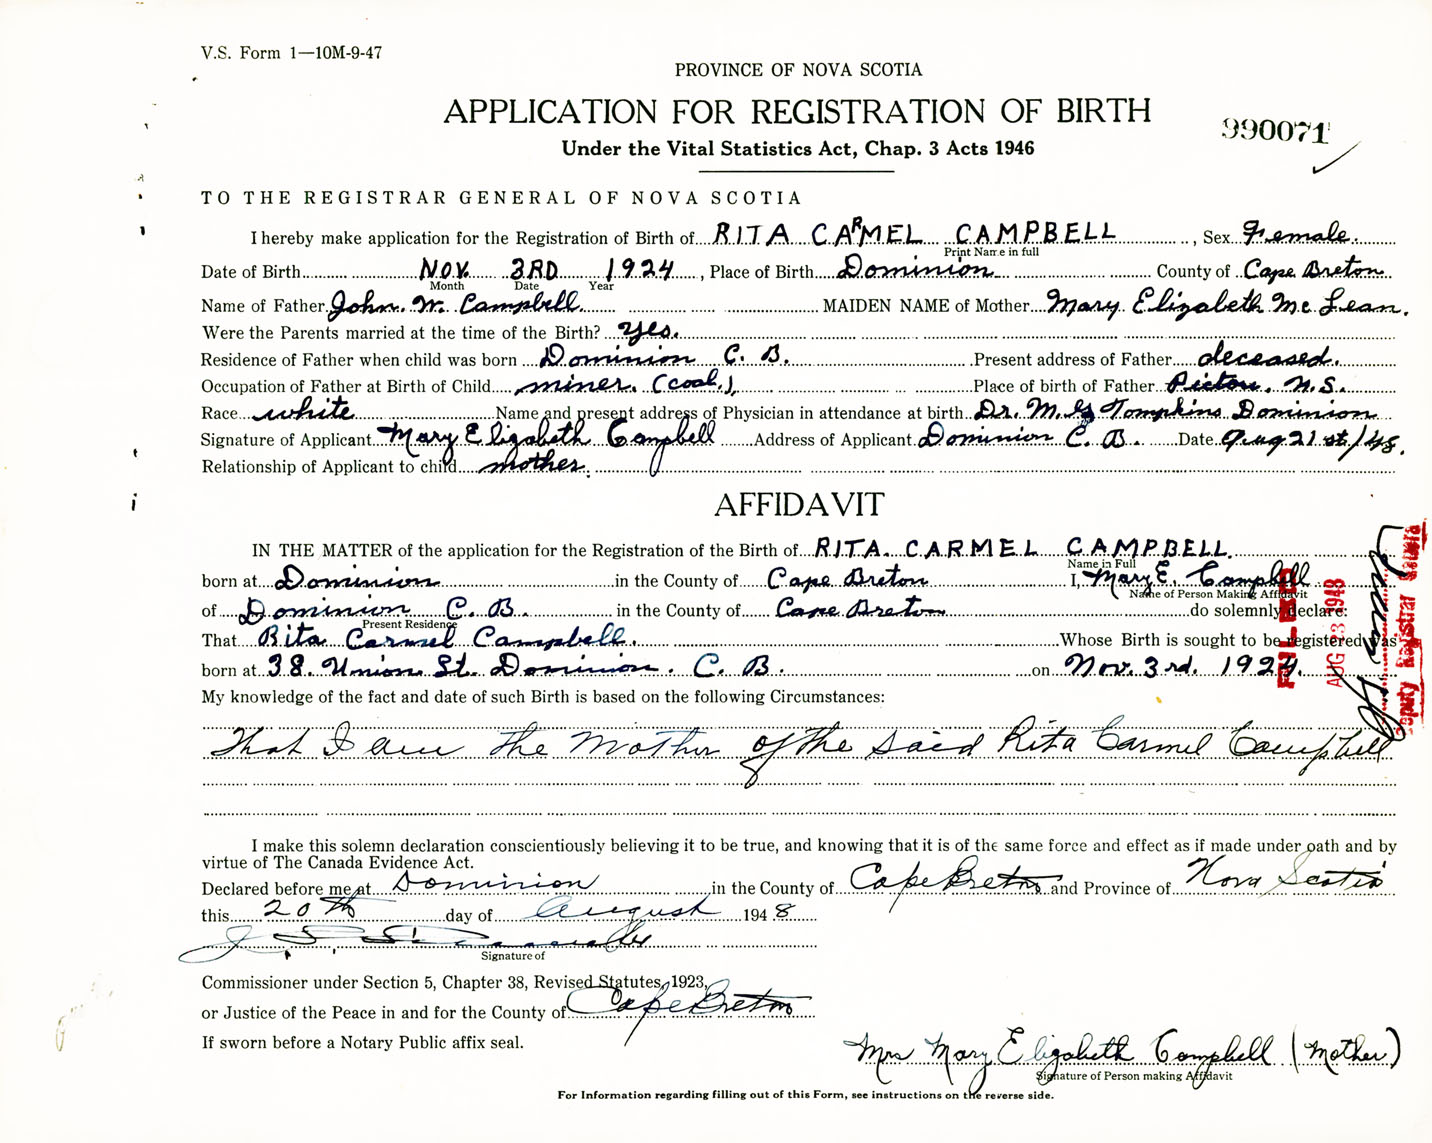 V.S. Form 1—10M-9-47
PROVINCE OF NOVA SCOTIA
APPLICATION FOR REGISTRATION OF BIRTH
990071
Under the Vital Statistics Act, Chap. 3 Acts 1946
TO THE REGISTRAR GENERAL OF NOVA SCOTIA
I hereby make application for the Registration of Birth of RITA CARMEL CAMPBELL, Sex Female.
Print Name in full
Date of Birth NOV. 3RD 1924, Place of Birth Dominion County of Cape Breton
Month Date Year
Name of Father John. W. Campbell MAIDEN NAME of Mother Mary Elizabeth Mc Lean.
Were the Parents married at the time of the Birth? Yes.
Residence of Father when child was born Dominion C. B. Present address of Father deceased.
Occupation of Father at Birth of Child miner. (coal.) Place of birth of Father Pictou. N.S.
Race white Name and present address of Physician in attendance at birth Dr. M. G Tompkins Dominion
Signature of Applicant Mary Elizabeth Campbell Address of Applicant Dominion C. B. Date Aug 21st/48.
Relationship of Applicant to child mother.
AFFIDAVIT
IN THE MATTER of the application for the Registration of the Birth of RITA. CARMEL CAMPBELL.
Name in Full
born at Dominion in the County of Cape Breton I, Mary E. Campbell
Name of Person Making Affidavit
of Dominion C. B. in the County of Cape Breton do solemnly declare:
Present Residence
That Rita Carmel Campbell. Whose Birth is sought to be registered was
born at 38. Union St. Dominion. C. B. on Nov. 3rd. 1924.
FILED
AUG 23 1948
Deputy Registrar General
My knowledge of the fact and date of such Birth is based on the following Circumstances:
That I am the Mother of the said Rita Carmel Campbell
I make this solemn declaration conscientiously believing it to be true, and knowing that it is of the same force and effect as if made under oath and by
virtue of The Canada Evidence Act.
Declared before me at Dominion in the County of Cape Breton and Province of Nova Scotia
this 20th day of August 1948
Signature of
Commissioner under Section 5, Chapter 38, Revised Statutes, 1923,
or Justice of the Peace in and for the County of Cape Breton
If sworn before a Notary Public affix seal.
Mrs Mary Elizabeth Campbell (Mother)
Signature of Person making Affidavit
For Information regarding filling out of this Form, see instructions on the reverse side.